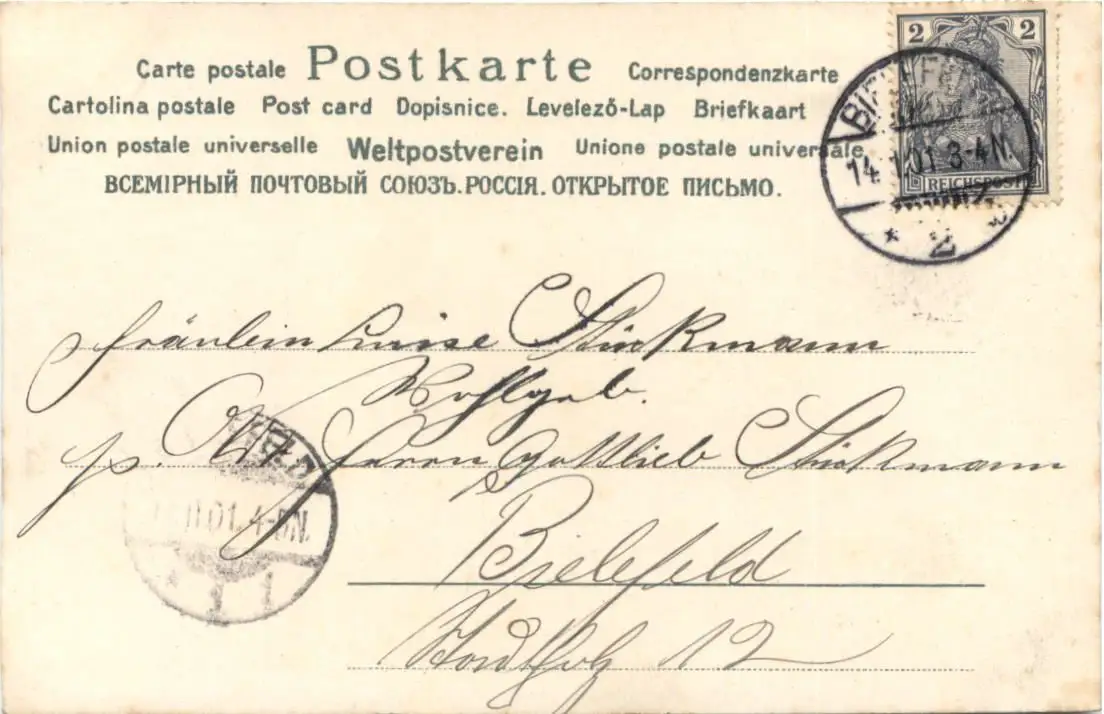 Carte postale Postkarte Correspondenzkarte
Cartolina postale Post card Dopisnice. Levelező-Lap Briefkaart
Union postale universelle Weltpostverein Unione postale universale
ВСЕМІРНЫЙ ПОЧТОВЫЙ СОЮЗЪ. РОССІЯ. ОТКРЫТОЕ ПИСЬМО.
2 2
REICHSPOST
14. 1.01 3-4N.
* 2
Fräulein Luise Stückmann
Wohlgeb.
p. Adr. Herrn Gottlieb Stückmann
Bielefeld
.01. 4-5N.
1